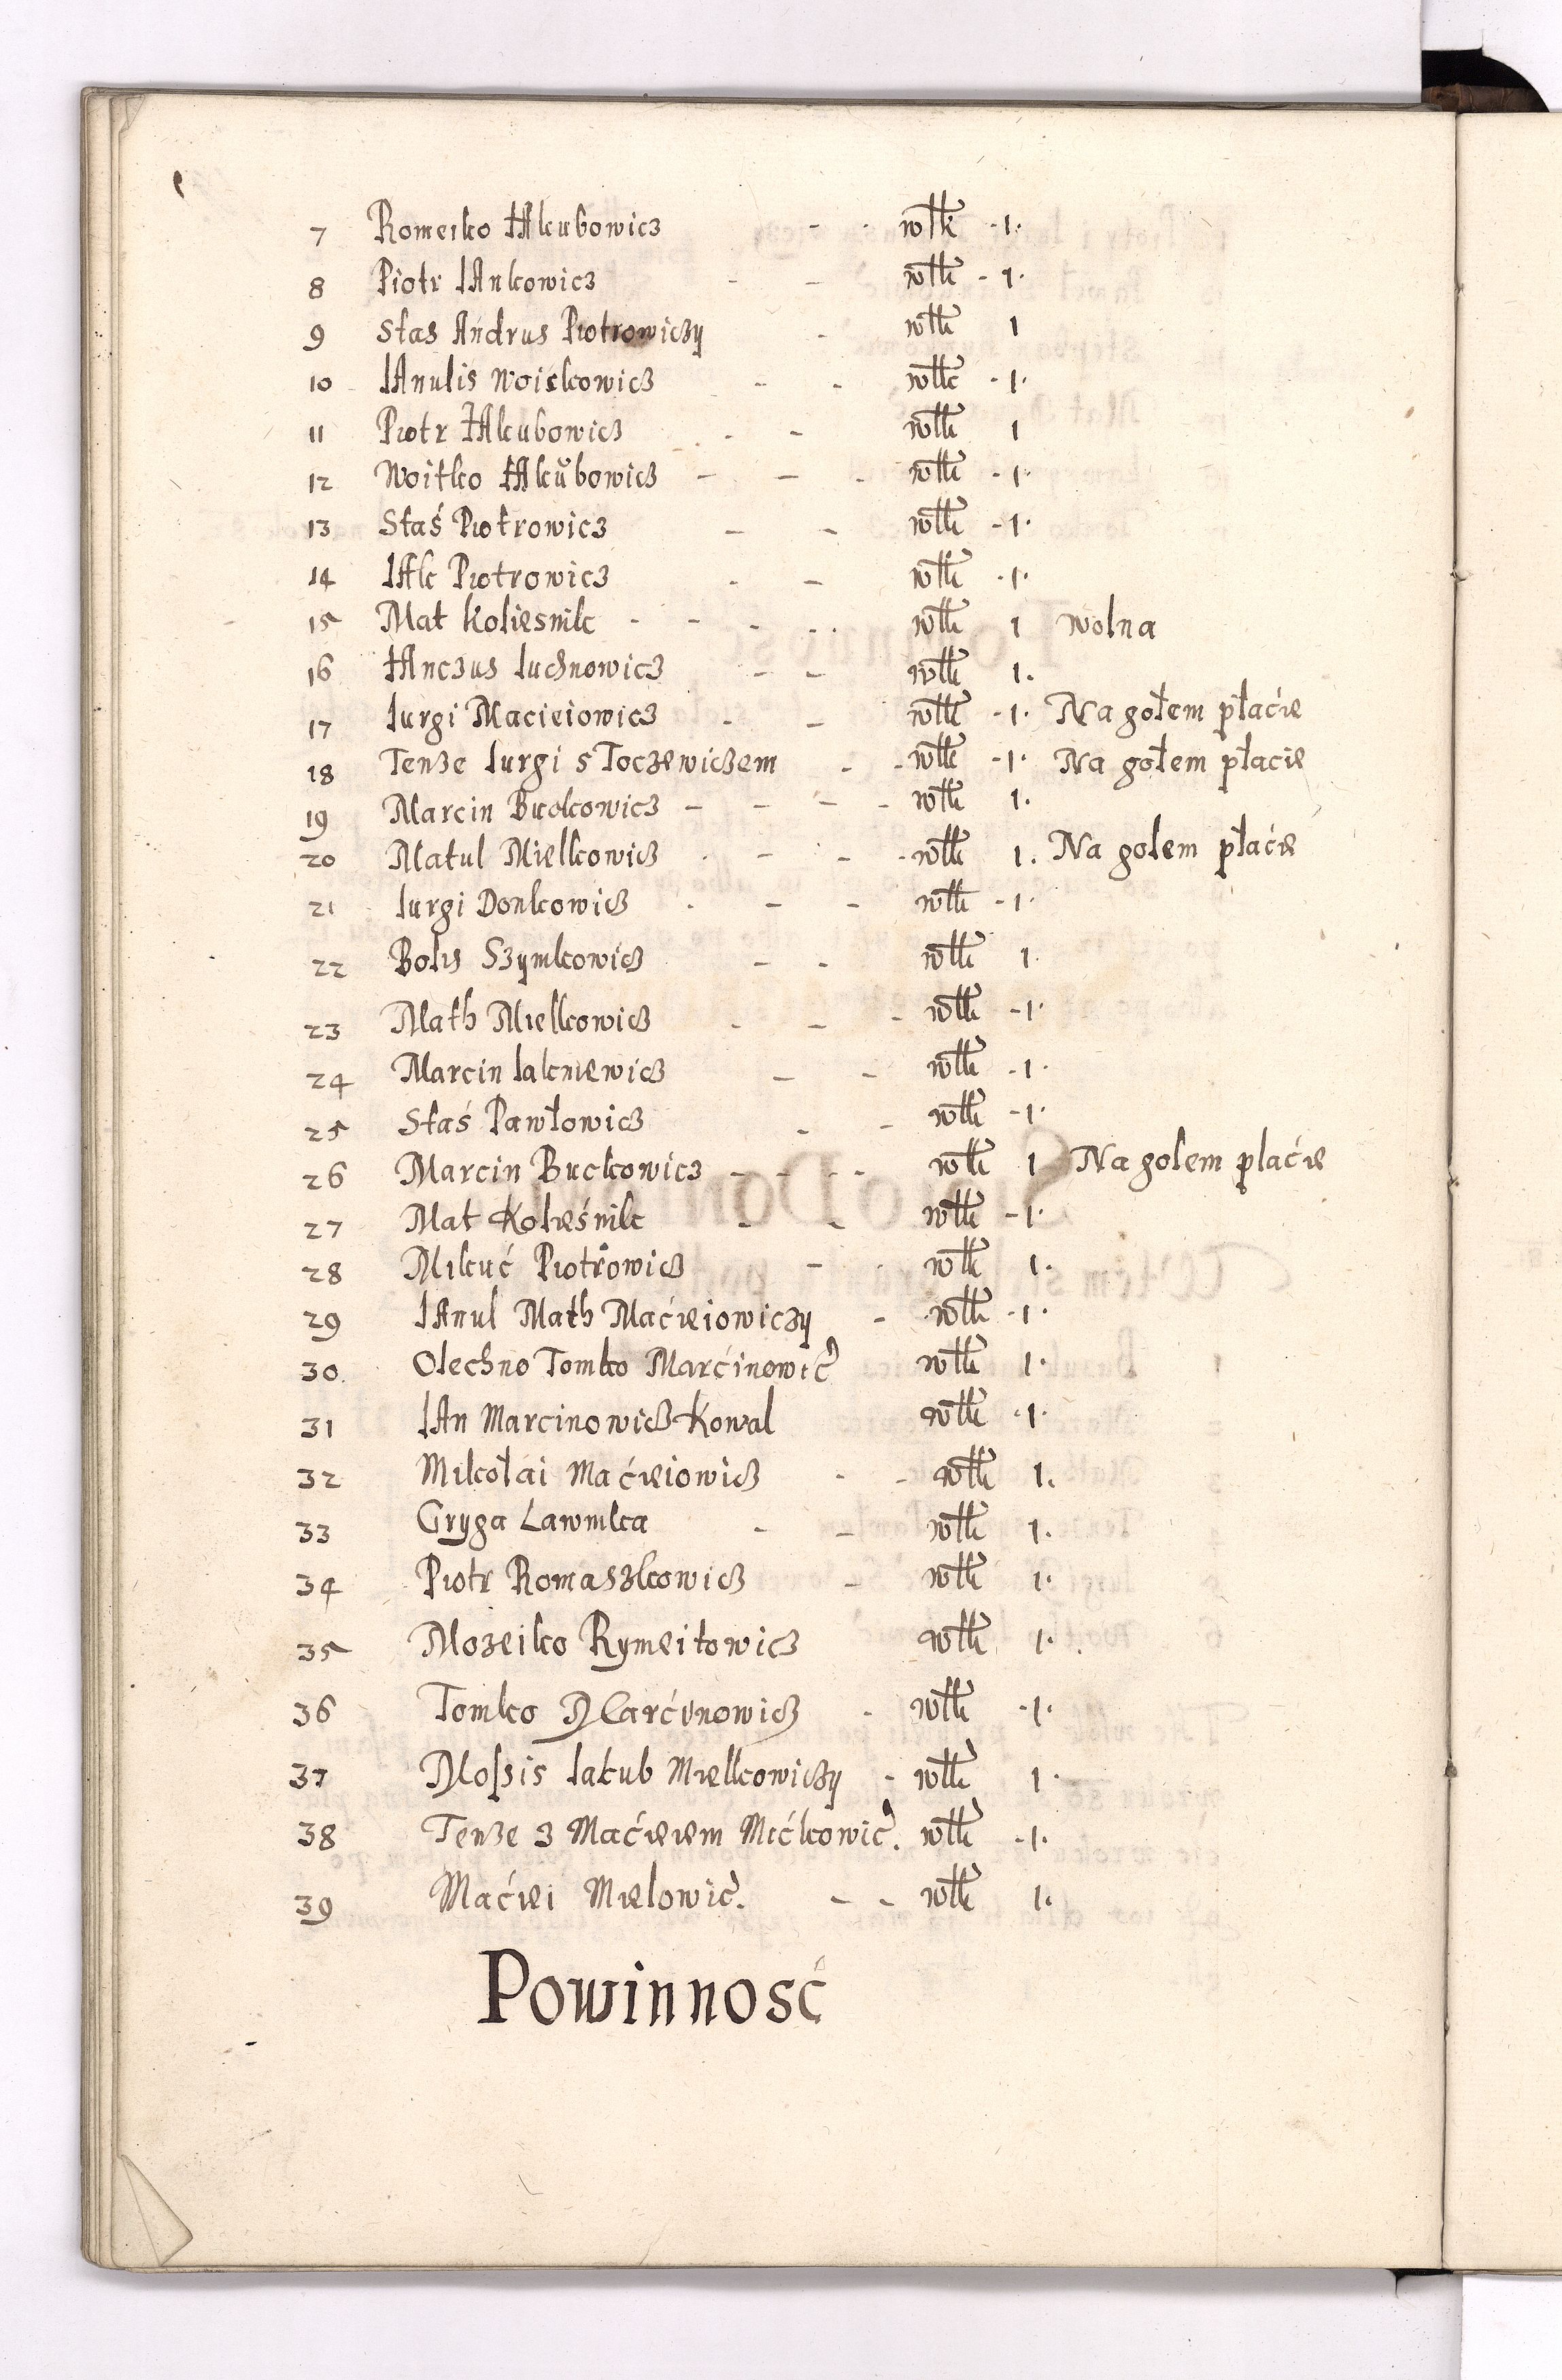 7 Romeiko IAkubowicz - - włk - 1.
8 Piotr IAnkowicz - - włk - 1.
9 Stas Andrus Piotrowiczy - włk 1
10 IAnulis Woitkowicz - - włk - 1.
11 Piotr IAkubowicz - - włk 1
12 Woitko IAkubowicz - - - włk - 1.
13 Staś Piotrowicz - - włk - 1.
14 IAk Piotrowicz - - włk - 1.
15 Mat Koliesnik - - - - włk 1 wolna
16 IAnczus Iuchnowicz - - włk 1.
17 Iurgi Macieiowicz - - włk - 1. Na gołem płaćie
18 Tenze Iurgi s Toczewiczem - - włk - 1. Na gołem płacie
19 Marcin Buckowicz - - - - włk 1.
20 Matul Mielkowicz - - - - włk 1. Na gołem płaćie
21 Iurgi Donkowicz - - - włk - 1.
22 Bolis Szymkowicz - - włk 1.
23 Math Mielkowicz - - - włk - 1.
24 Marcin Iakniewicz - - włk - 1.
25 Staś Pawłowicz - - włk - 1.
26 Marcin Buckowicz - - - - włk 1 Na gołem płaćie
27 Mat Kolieśnik - - włk - 1.
28 Mikuć Piotrowicz - - włk 1.
29 IAnul Math Maćieiowiczy - włk - 1.
30 Olechno Tomko Marćinowić włk 1.
31 IAn Marcinowicz Kowal włk - 1.
32 Mikołai Maćieiowicz - - włk 1.
33 Gryga Ławnika - - włk 1.
34 Piotr Romaszkowicz - włk 1.
35 Mozeiko Rymeitowicz włk 1.
36 Tomko Marćinowicz - włk - 1.
37 Moszis Iakub Mielkowiczy - włk 1.
38 Tenze z Maćieiem Mićkowić. włk - 1.
39 Maćiei Mielowić. - - włk 1.
Powinność